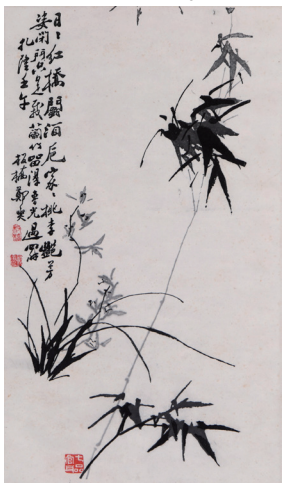 日々紅橋鬪酒卮家々桃李艷芳
姿閉門只是栽蘭竹留得春光過四時
乾隆壬午
板橋鄭燮
七品官耳